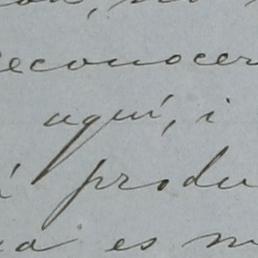 reconocer
aquí, i
produ
es m